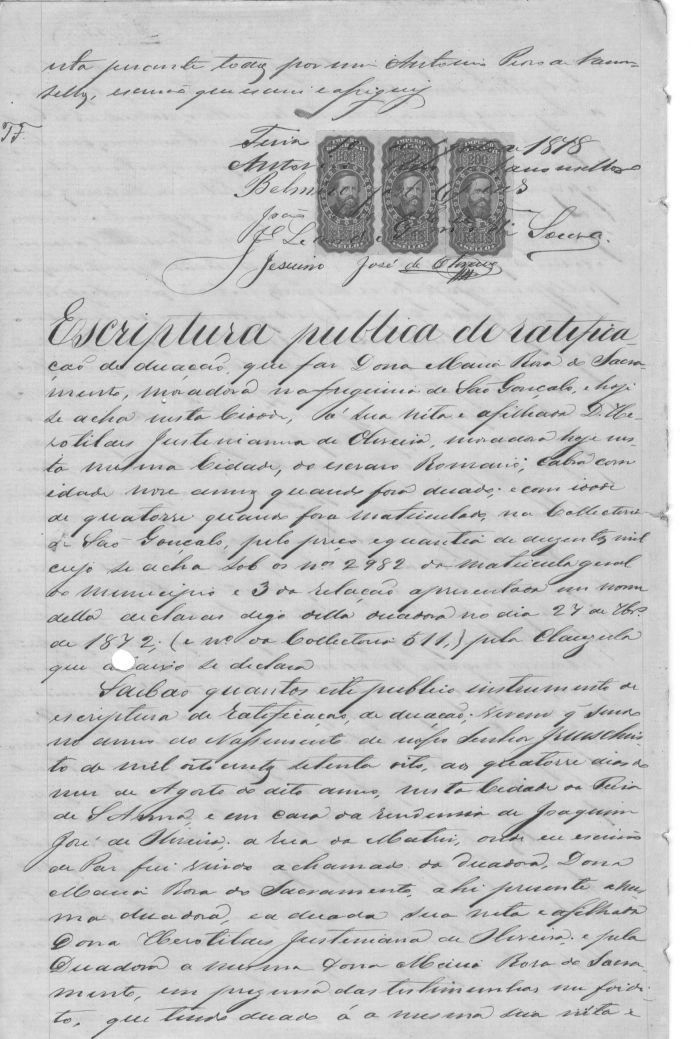 esta perante todos por mim Antonio
escrivão que escrevi e assignei
TF.
Feira 1878
Antonio
Belmiro
João
Souza.
Jesuino José de
IMPERIO DO BRAZIL
200
Escriptura publica de ratifica-
ção de duação, que faz Dona Maria Rosa do Sacra-
mento, moradora na freguizia de São Gonçalo, e hoje
se acha nesta Cidade, á sua neta e afilhada D. He-
rotildes Justenianna de Oliveira, moradora hoje nes-
ta mesma Cidade, do escravo Romario, cabra com
idade nove annos quando fora duado; e com idade
de quatorze quando fora matriculado, na Collectoria
de São Gonçalo, pelo preço e quantia de duzentos mil
cujo se acha sob os nos 2982 da matricula geral
do municipio e 3 da relação apresentada em nome
della declaras digo della duadora no dia 27 de
de 1872; (e no da Collectoria 511,) pela Clauzula
que abaixo se declara
Saibão quantos este publico instrumento de
escriptura de ratificação, de duação, virem q' sendo
no anno do Nassimento de nosso Senhor Jesus Chris-
to de mil oito centos setenta oito, aos quatorze dias do
mez de Agosto do dito anno, nesta Cidade da Feira
de S. Anna, e em casa da rezidencia de Joaquim
José de Oliveira, a rua da Matriz, onde eu escrivão
de Paz fui vindo a chamado da duadora, Dona
Maria Rosa do Sacramento, ahi prezente a mes-
ma duadora, e a duada sua neta e afilhada
Dona Herotildes Justeniana de Oliveira. e pela
Duadora a mesma Dona Maria Rosa do Sacra-
mento, em prezença das testimunhas me foi di-
to, que tendo duado á a mesma sua neta e